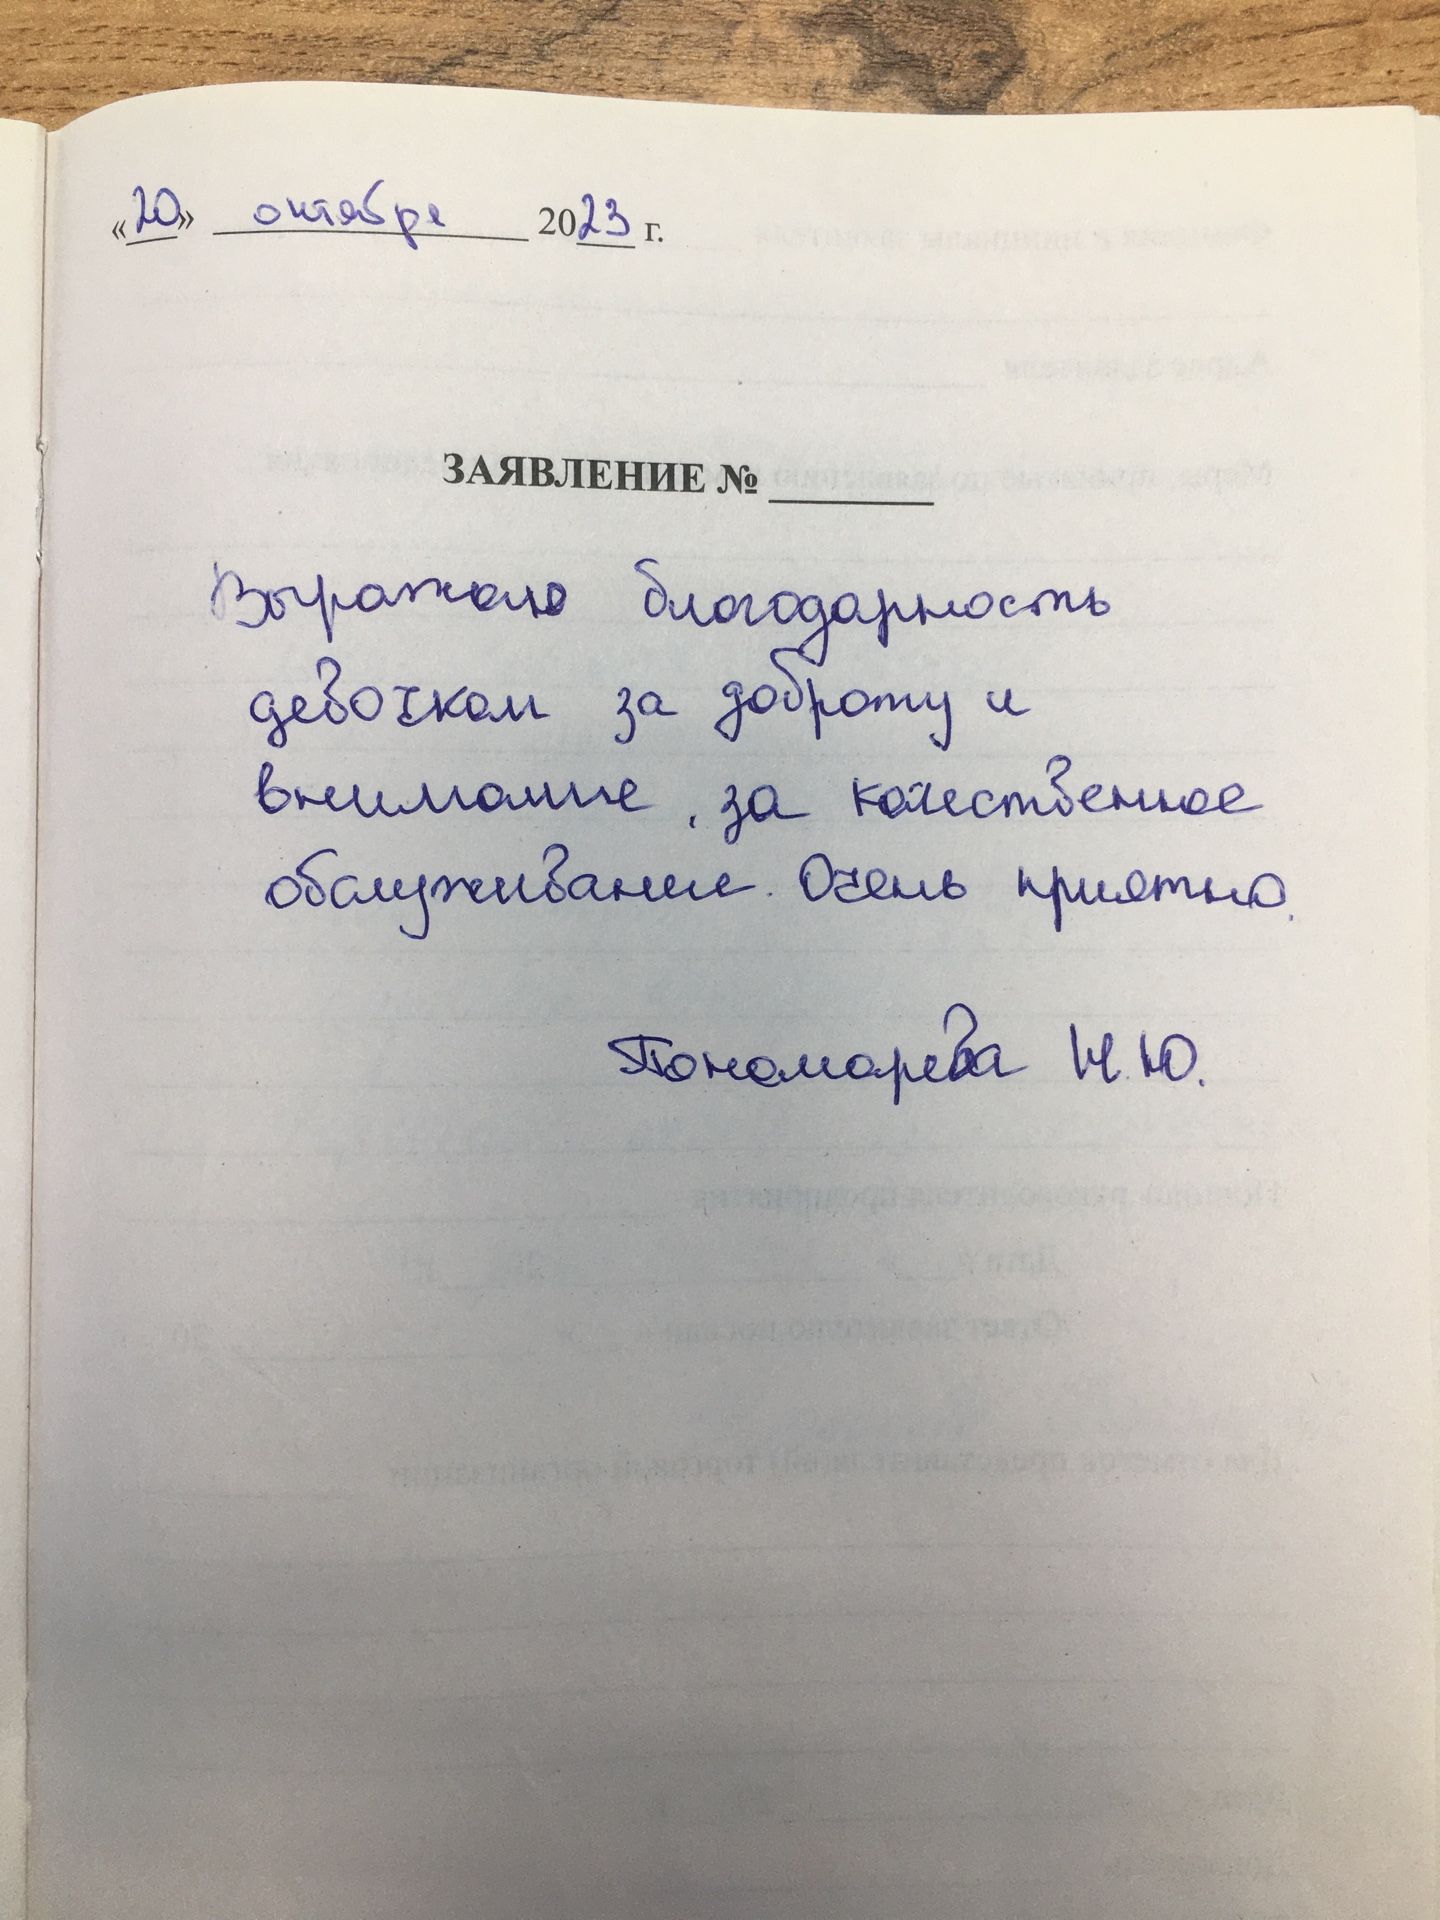 «20» октября 2023 г.
ЗАЯВЛЕНИЕ №
Выражаю благодарность
девочкам за доброту и
внимание, за качественное
обслуживание. Очень приятно.
Пономарева Н.Ю.